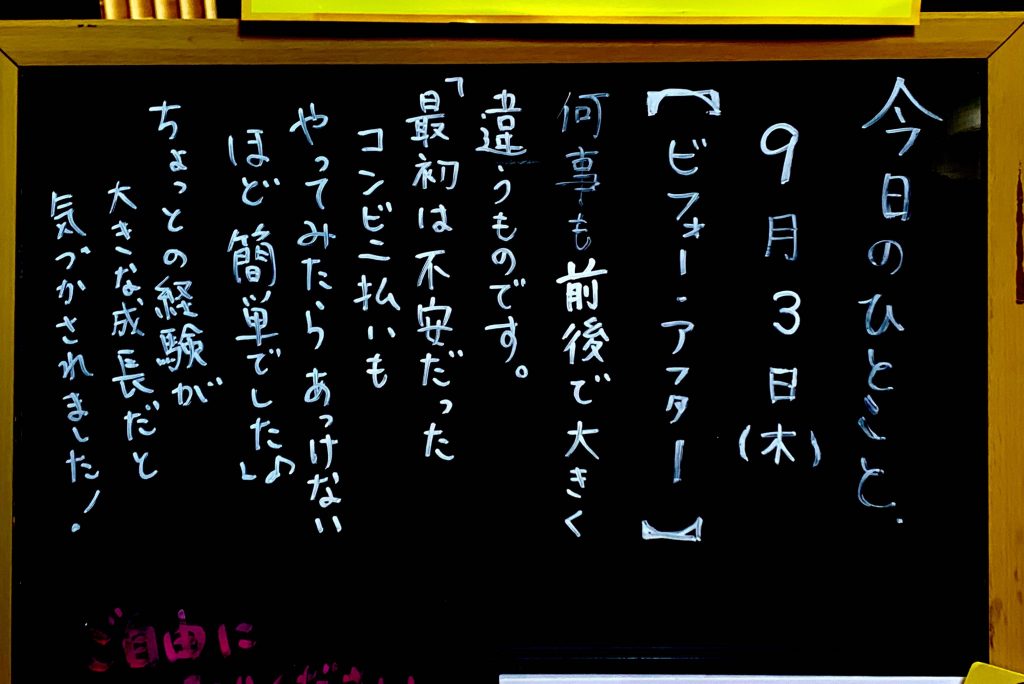 今日のひとこと.
9月3日(木)
【ビフォー・アフター】
何事も前後で大きく
違うものです。
「最初は不安だった
コンビニ払いも
やってみたらあっけない
ほど簡単でした♪」
ちょっとの経験が
大きな成長だと
気づかされました！
ご自由に